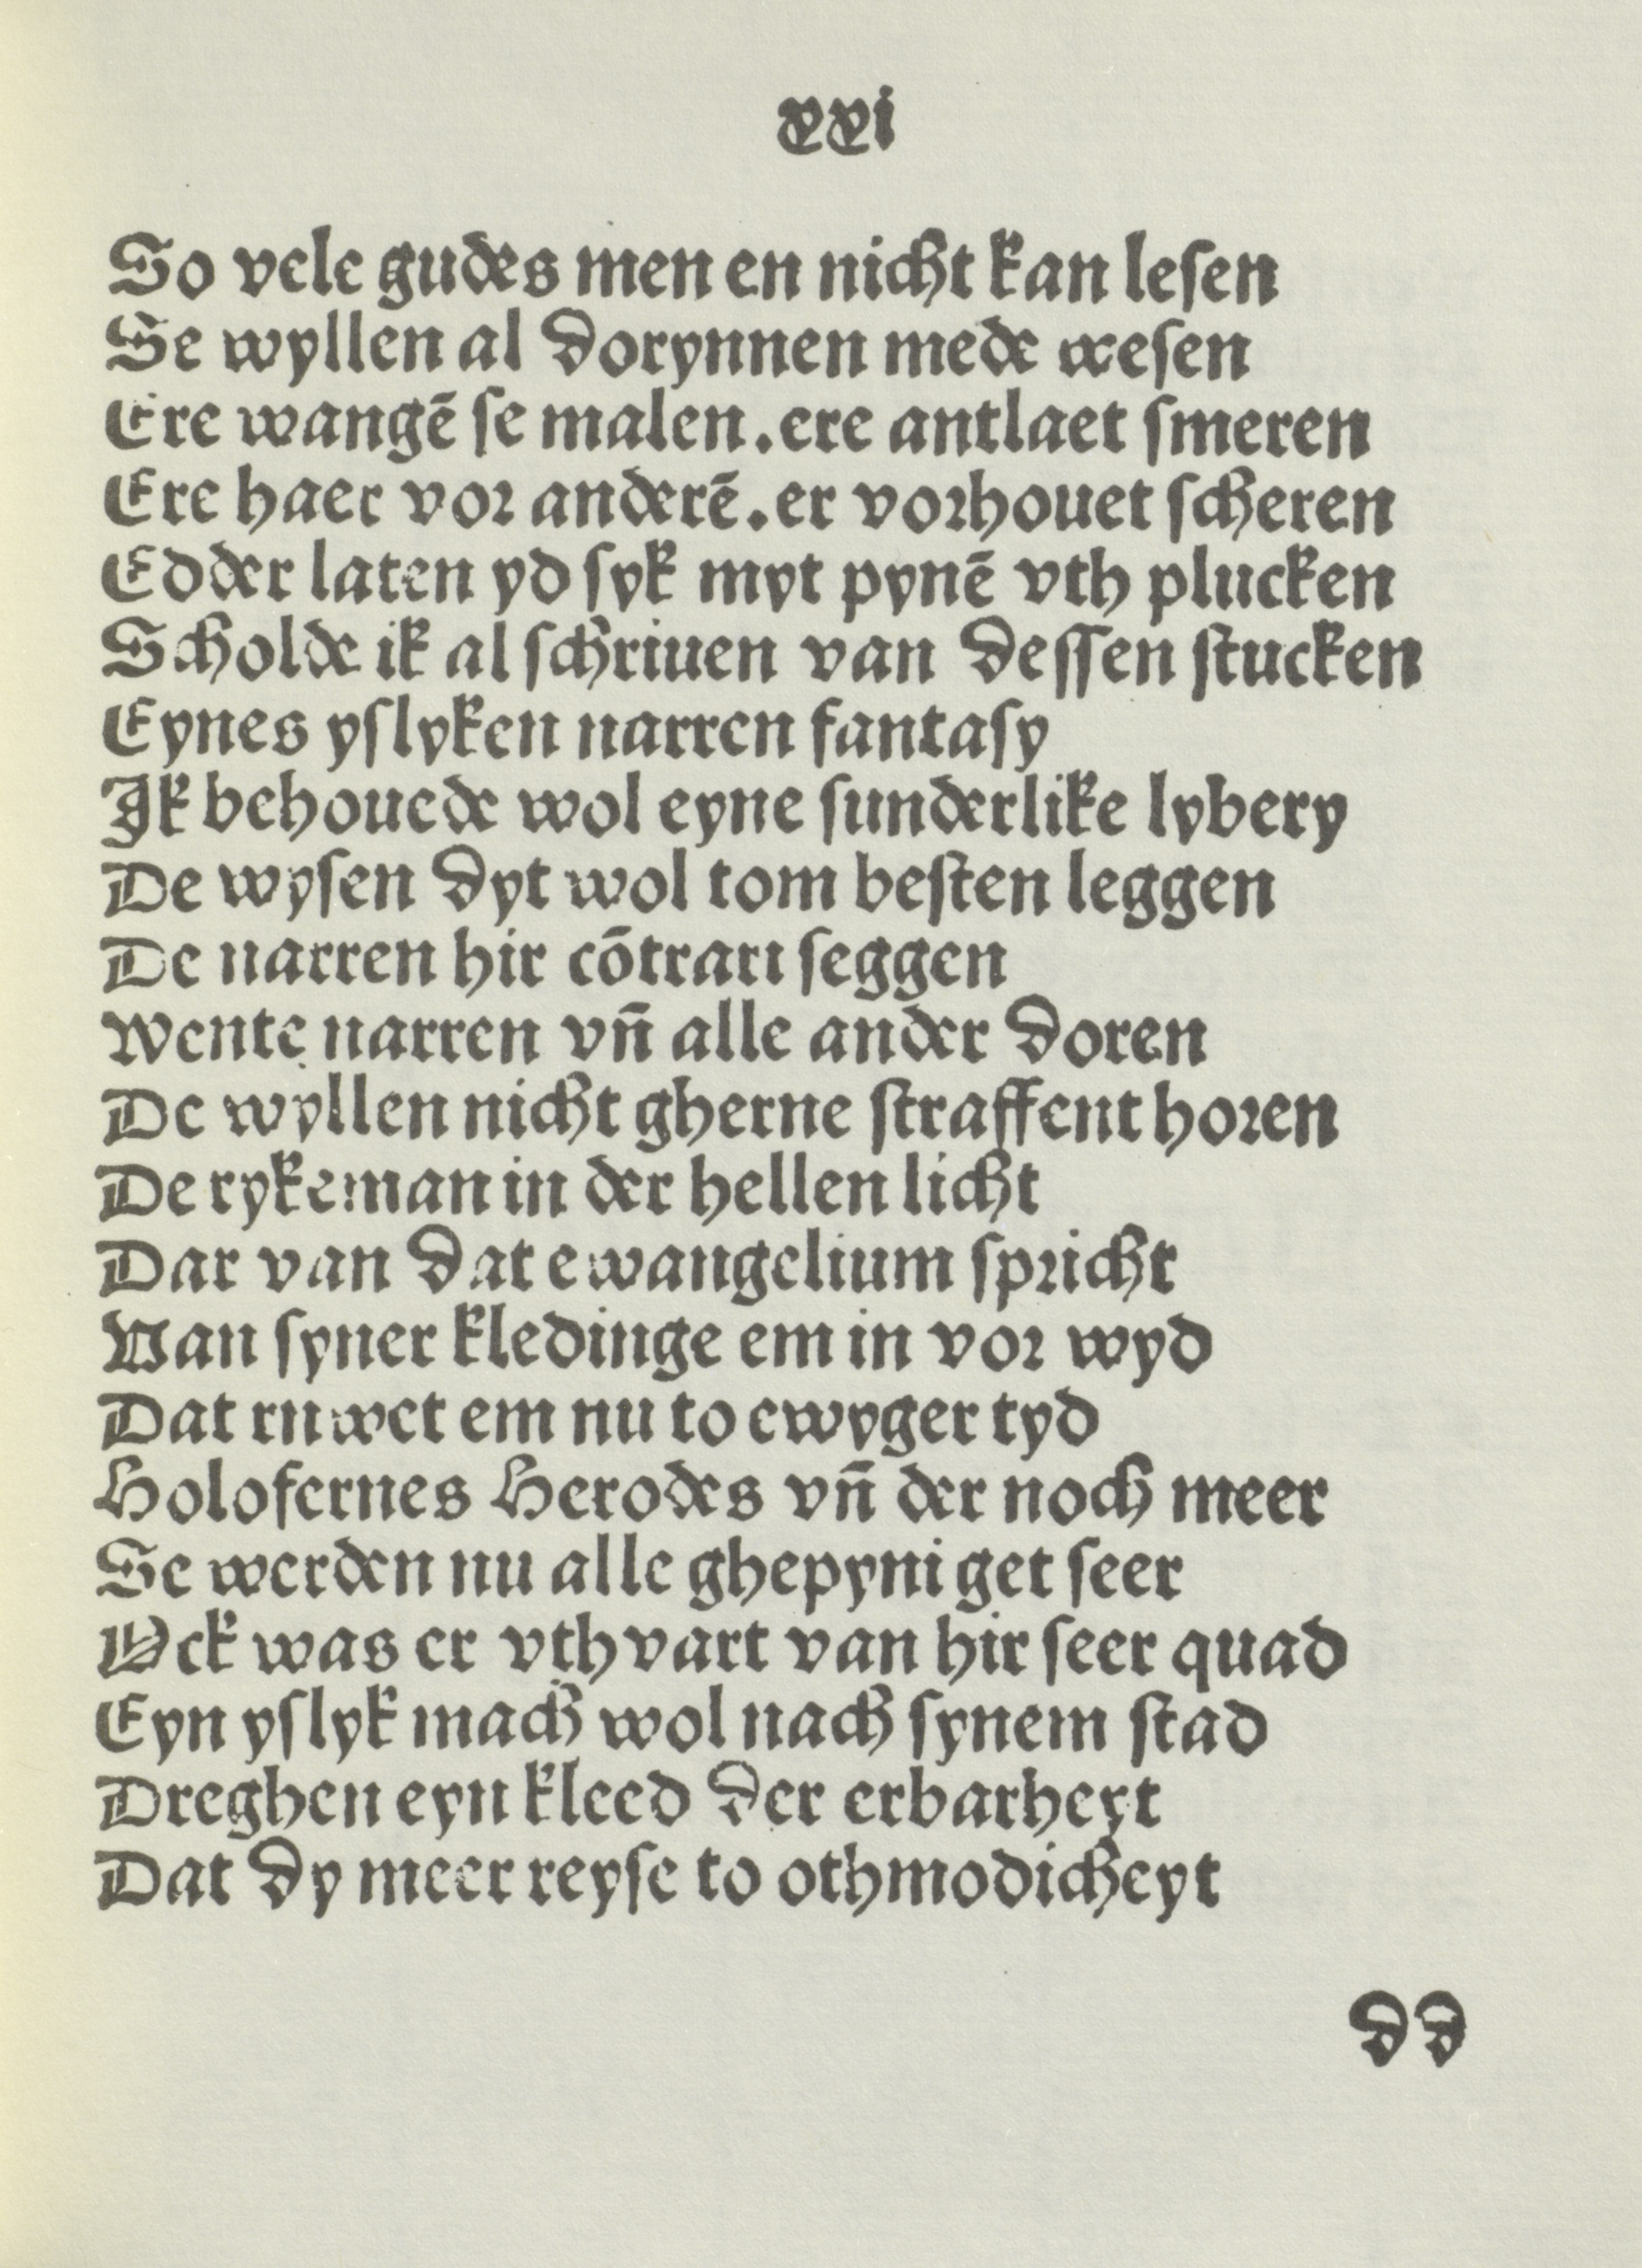 xxi
So vele gudes men en nicht kan lesen
Se wyllen al dorynnen mede wesen
Ere wangē se malen.ere antlaet smeren
Ere haer vor anderē.er vorhouet scheren
Edder laten yd syk myt pynē vth plucken
Scholde ik al schriuen van dessen stucken
Eynes yslyken narren fantasy
Ik behouede wol eyne sunderlike lybery
De wysen dyt wol tom besten leggen
De narren hir cōtrari seggen
Wente narren vn̄ alle ander doren
De wyllen nicht gherne straffent horen
De rykeman in der hellen licht
Dar van dat ewangelium spricht
Van syner kledinge em in vor wyd
Dat ruwet em nu to ewyger tyd
Holofernes Herodes vn̄ der noch meer
Se werden nu alle ghepyniget seer
Ock was er vth vart van hir seer quad
Eyn yslyk mach wol nach synem stad
Dreghen eyn kleed der erbarheyt
Dat dy meer reyse to othmodicheyt
dd